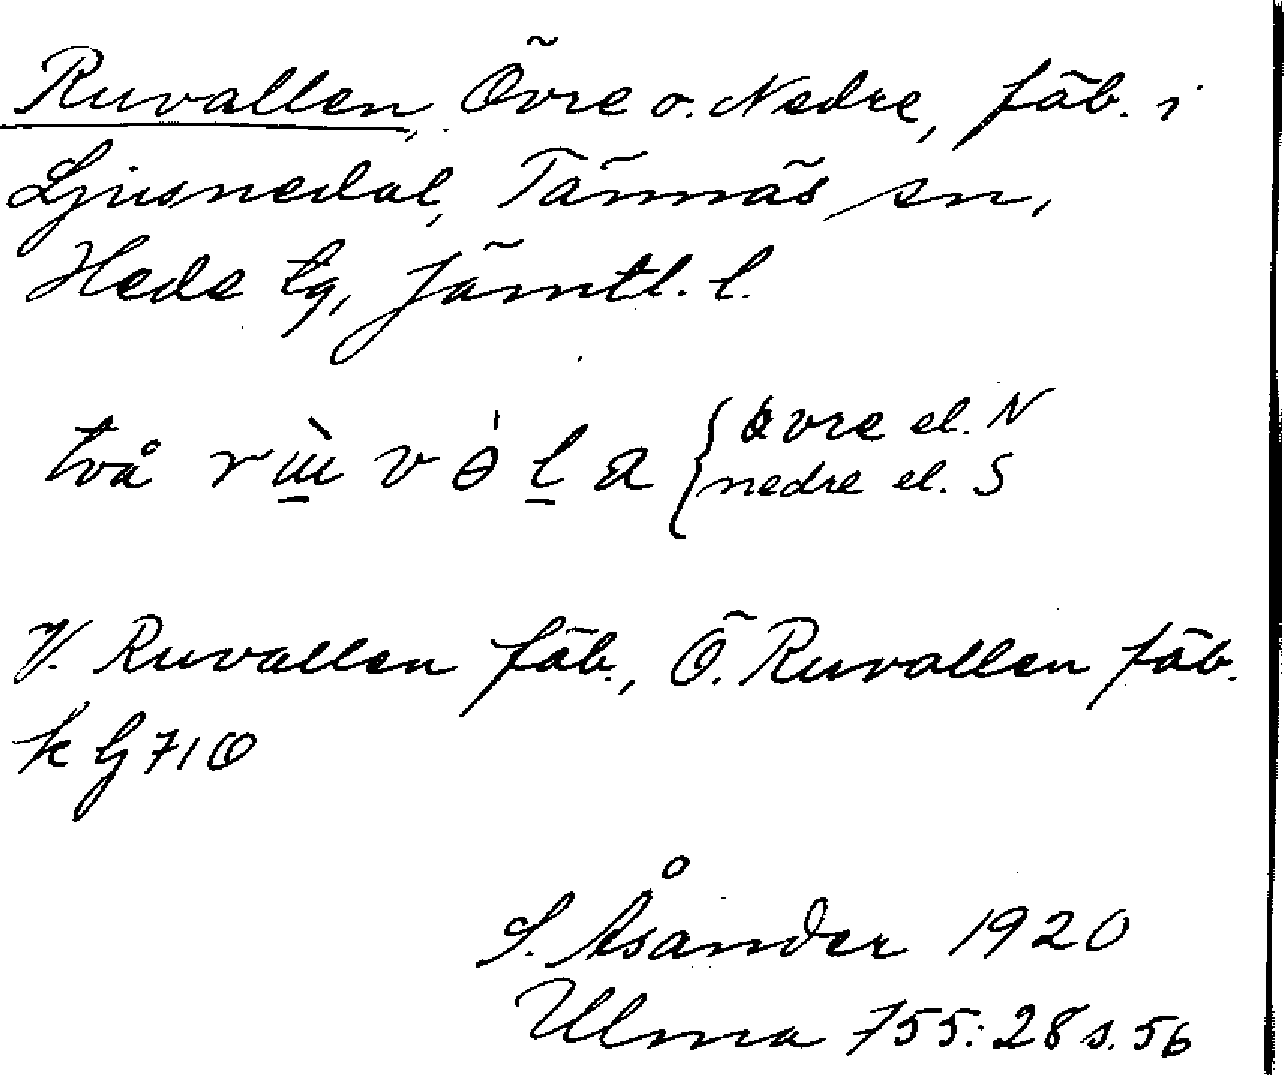 Ruvallen, Övre o. Nedre, fäb. i
Ljusnedal, Tännäs sn,
Hede tg, Jämtl. l.
två
övre el. N
nedre el. S
V. Ruvallen fäb., Ö. Ruvallen fäb.
k G710
S. Åsander 1920
Ulma 755:28 s. 56